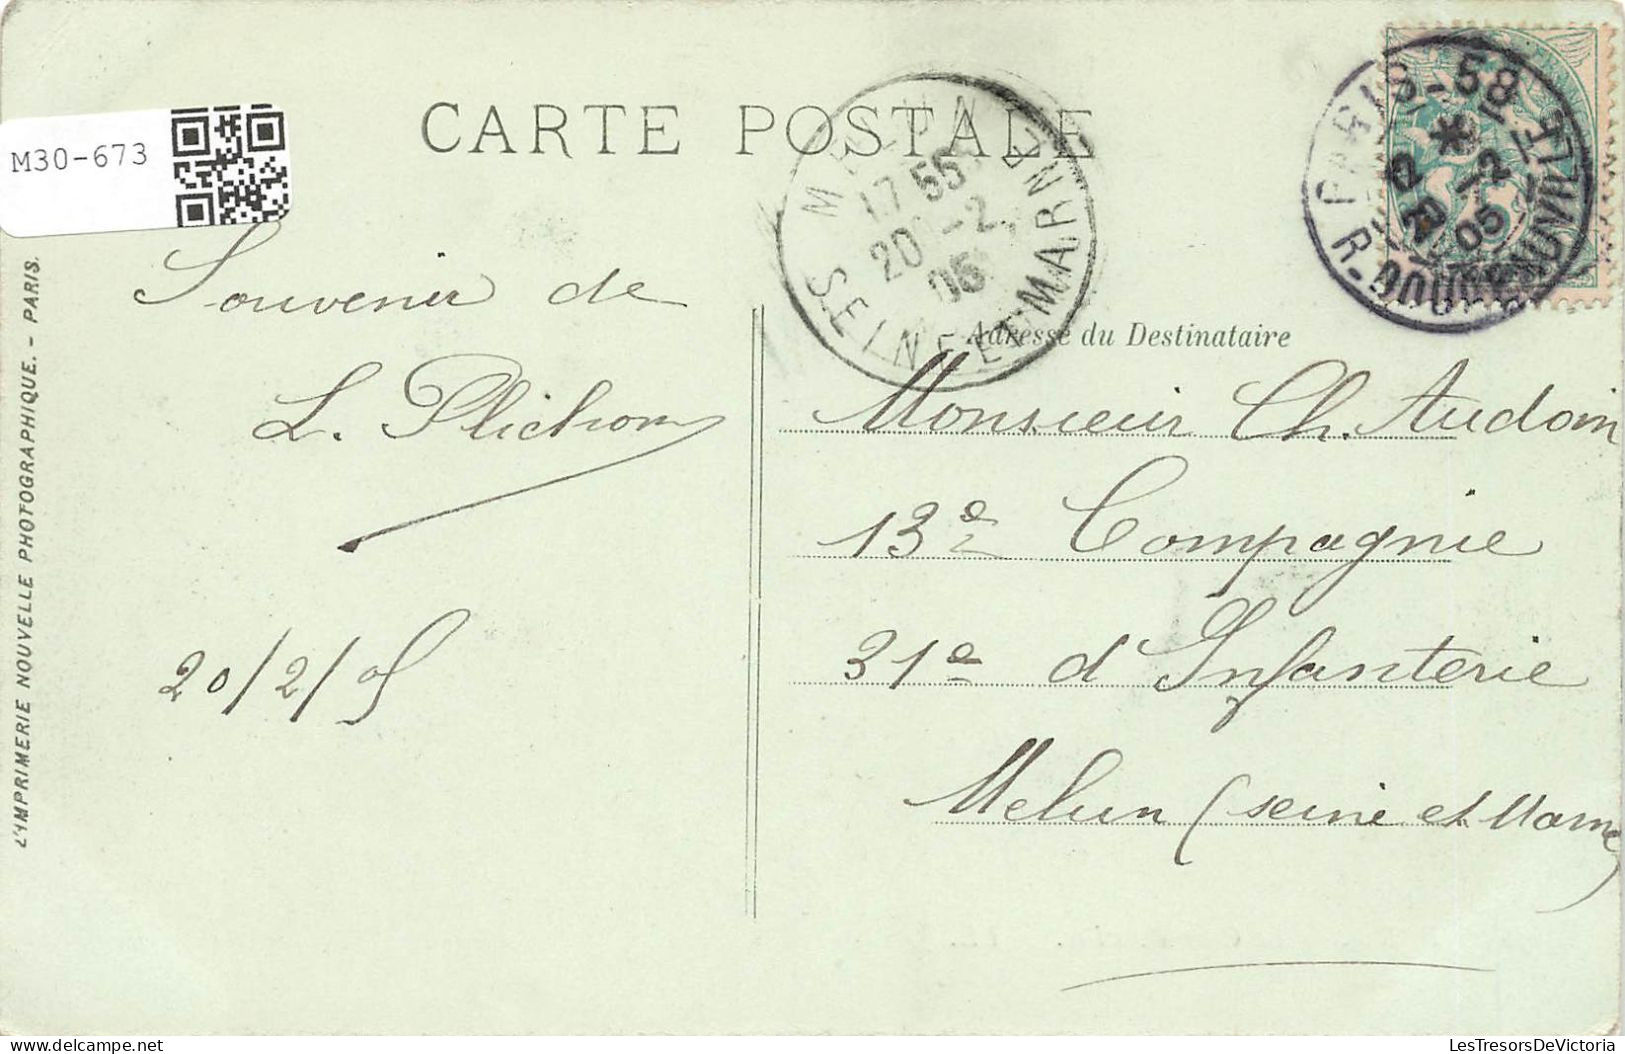 CARTE POSTALE
M30-673
L'IMPRIMERIE NOUVELLE PHOTOGRAPHIQUE. - PARIS.
Souvenir de
L. Plichon
20/2/05
MELUN
17 55
20 -2
05
SEINE ET MARNE
PARIS-58
-2
05
R. DOUDEAUVILLE
Adresse du Destinataire
Monsieur Ch. Audoin
13e Compagnie
31e d'Infanterie
Melun (seine et Marne)
LesTresorsDeVictoria
delcampe.net